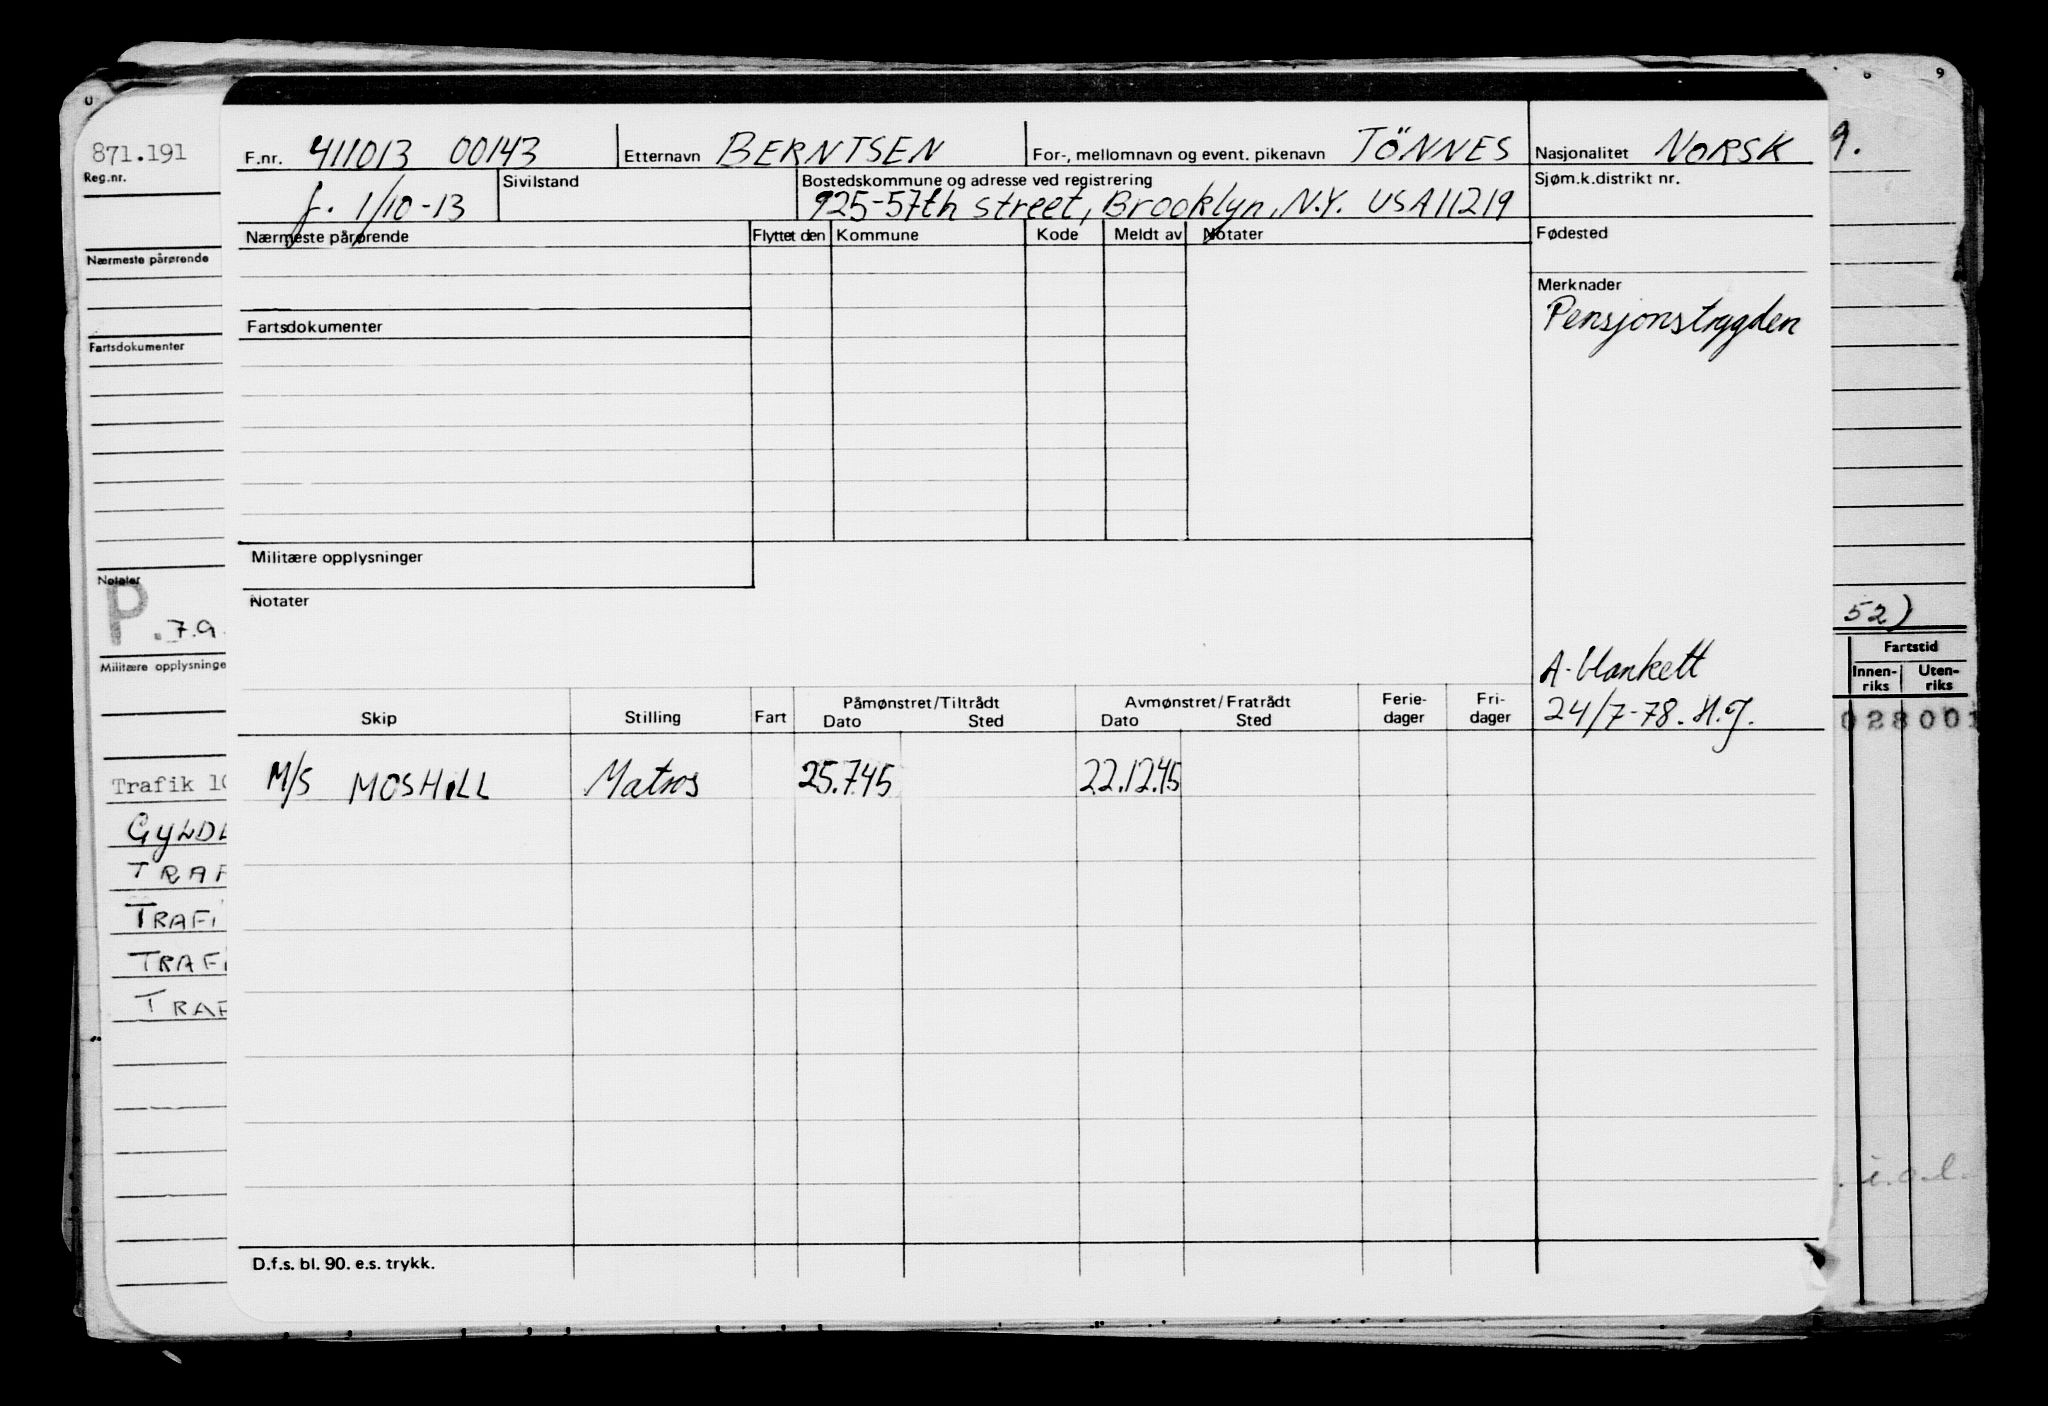 F.nr. 411013 00143 Etternavn BERNTSEN For-, mellomnavn og event. pikenavn TÖNNES Nasjonalitet NORSK
f. 1/10-13 Sivilstand Bostedskommune og adresse ved registrering Sjøm.k.distrikt nr.
925-57th street, Brooklyn, N.Y. USA 11219
Nærmeste pårørende Flyttet den Kommune Kode Meldt av Notater Fødested
Merknader
Pensjonstrygden
Fartsdokumenter
Militære opplysninger
Notater
A-blankett
24/7-78. H.J.
Skip Stilling Fart Påmønstret/Tiltrådt Dato Sted Avmønstret/Fratrådt Dato Sted Ferie-dager Fri-dager
M/S MOSHiLL Matros 25.7.45 22.12.45
D.f.s. bl. 90. e.s. trykk.
871.191
Reg.nr.
Nærmeste pårørende
Fartsdokumenter
Notater
P.7.9.
Militære opplysninge
Trafik 10
GYLDL
TRAF
TRAFI
TRAFI
TRAF
8 9
9.
52)
Fartstid
Innen-riks Uten-riks
028001
i.o.l.